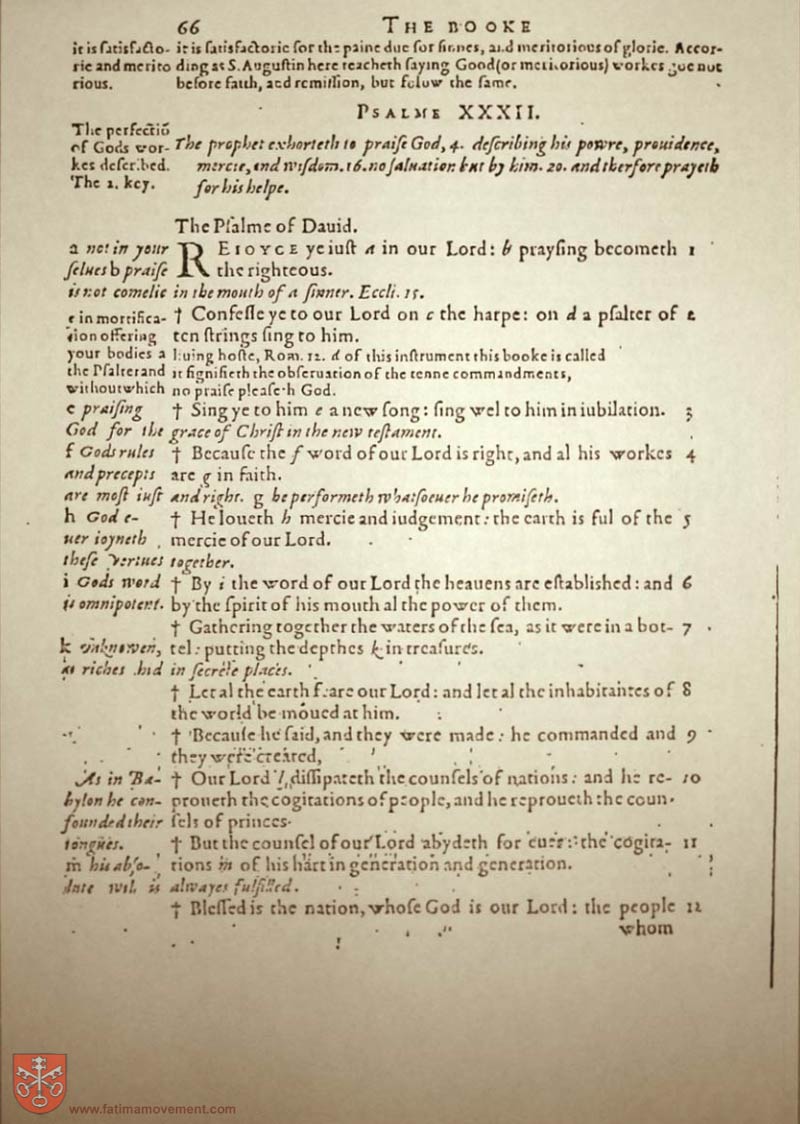 66 THE BOOKE
it is satisfacto- it is satisfactorie for the paine due for sinnes, and meritorious of glorie. Accor-
rie and merito ding as S. Augustin here teacheth saying Good (or meritorious) workes goe not
rious. before faith, and remission, but folow the same.
PSALME XXXII.
The perfectiõ
of Gods wor- The prophet exhorteth to praiſe God, 4. deſcribing his powre, prouidence,
kes deſcribed. mercie, and wiſdom. 16. no ſaluation but by him. 20. and therfore prayeth
The 2. key. for his helpe.
The Pſalme of Dauid.
a not in your REIOYCE ye iuſt a in our Lord: b prayſing becometh 1
ſelues b praiſe the righteous.
is not comelie in the mouth of a ſinner. Eccli. 15.
c in mortifica- † Confeſſe ye to our Lord on c the harpe: on d a pſalter of 2
tion offering ten ſtrings ſing to him.
your bodies a liuing hoſte, Rom. 12. d of this inſtrument this booke is called
the Pſalter and it ſignifieth the obſeruation of the tenne commandments,
without which no praiſe pleaſeth God.
e praiſing † Sing ye to him e a new ſong: ſing wel to him in iubilation. 3
God for the grace of Chriſt in the new teſtament.
f Gods rules † Becauſe the f word of our Lord is right, and al his workes 4
and precepts are g in faith.
are moſt iuſt and right. g he performeth whatſoeuer he promiſeth.
h God e- † He loueth h mercie and iudgement: the earth is ful of the 5
uer ioyneth mercie of our Lord.
theſe vertues together.
i Gods word † By i the word of our Lord the heauens are eſtabliſhed: and 6
is omnipotent. by the ſpirit of his mouth al the power of them.
† Gathering together the waters of the ſea, as it were in a bot- 7
k vnknowen, tel: putting the depthes k in treaſures.
as riches hid in ſecrete places.
† Let al the earth feare our Lord: and let al the inhabitantes of 8
the world be moued at him.
† Becauſe he ſaid, and they were made: he commanded and 9
they were created,
As in Ba- † Our Lord l diſſipateth the counſels of nations: and he re- 10
bylon he con- proueth the cogitations of people, and he reproueth the coun-
founded their ſels of princes.
tongues. † But the counſel of our Lord abydeth for euer: the cogita- 11
m his abſo- tions m of his hart in generation and generation.
lute wil is alwayes fulfilled.
† Bleſſed is the nation, whoſe God is our Lord: the people 12
whom
www.fatimamovement.com